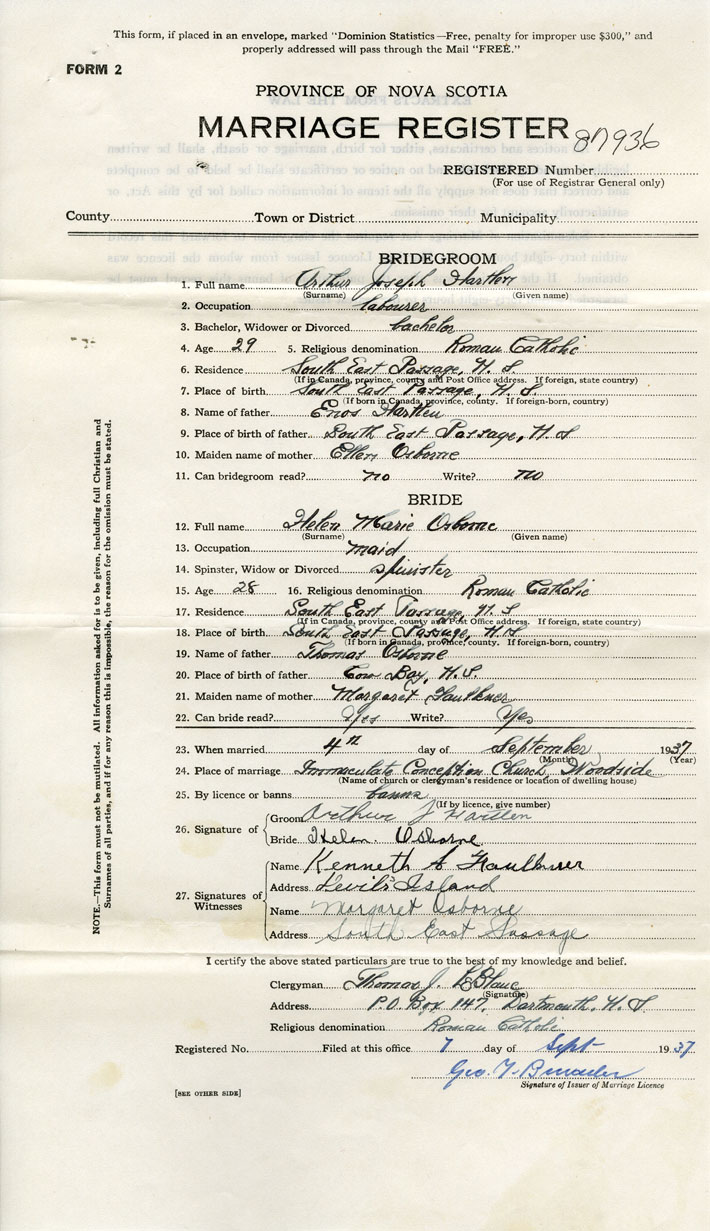 This form, if placed in an envelope, marked "Dominion Statistics—Free, penalty for improper use $300," and
properly addressed will pass through the Mail "FREE."
FORM 2
PROVINCE OF NOVA SCOTIA
MARRIAGE REGISTER
87936
REGISTERED Number
(For use of Registrar General only)
County Town or District Municipality
BRIDEGROOM
1. Full name Arthur Joseph Hartlen
(Surname) (Given name)
2. Occupation labourer
3. Bachelor, Widower or Divorced bachelor
4. Age 29 5. Religious denomination Roman Catholic
6. Residence South East Passage, N.S.
(If in Canada, province, county and Post Office address. If foreign, state country)
7. Place of birth South East Passage, N.S.
(If born in Canada, province, county. If foreign-born, country)
8. Name of father Enos Hartlen
9. Place of birth of father South East Passage, N.S
10. Maiden name of mother Ellen Osborne
11. Can bridegroom read? no Write? no
BRIDE
12. Full name Helen Marie Osborne
(Surname) (Given name)
13. Occupation maid
14. Spinster, Widow or Divorced spinster
15. Age 28 16. Religious denomination Roman Catholic
17. Residence South East Passage, N.S
(If in Canada, province, county and Post Office address. If foreign, state country)
18. Place of birth South East Passage, N.S.
(If born in Canada, province, county. If foreign-born, country)
19. Name of father Thomas Osborne
20. Place of birth of father Cow Bay, N.S.
21. Maiden name of mother Margaret Faulkner
22. Can bride read? Yes Write? Yes
23. When married 4th day of September 1937
(Month) (Year)
24. Place of marriage Immaculate Conception Church, Woodside
(Name of church or clergyman's residence or location of dwelling house)
25. By licence or banns banns
(If by licence, give number)
26. Signature of
Groom Arthur J Hartlen
Bride Helen. Osborne
27. Signatures of Witnesses
Name Kenneth A Faulkner
Address Devil's Island
Name Margaret Osborne
Address South East Passage
I certify the above stated particulars are true to the best of my knowledge and belief.
Clergyman Thomas J. LeBlanc
(Signature)
Address P.O. Box 147, Dartmouth, N.S
Religious denomination Roman Catholic
Registered No. Filed at this office 7 day of Sept 1937
Geo. T.
Signature of Issuer of Marriage Licence
[SEE OTHER SIDE]
NOTE.—This form must not be mutilated. All information asked for is to be given, including full Christian and
Surnames of all parties, and if for any reason this is impossible, the reason for the omission must be stated.